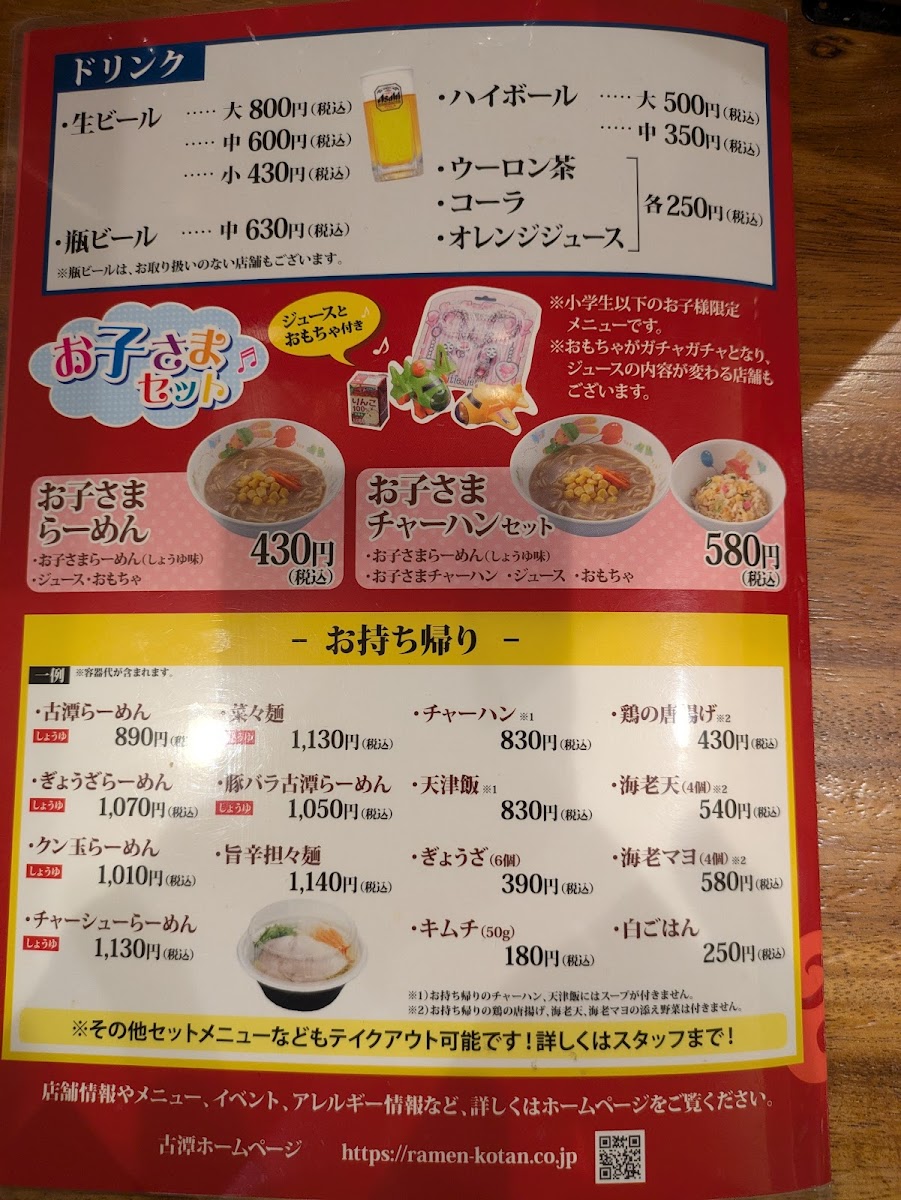 ドリンク
・生ビール ‥‥‥ 大 800円(税込)
‥‥‥ 中 600円(税込)
‥‥‥ 小 430円(税込)
・瓶ビール ‥‥‥ 中 630円(税込)
※瓶ビールは、お取り扱いのない店舗もございます。
Asahi
・ハイボール ‥‥‥ 大 500円(税込)
‥‥‥ 中 350円(税込)
・ウーロン茶
・コーラ
・オレンジジュース
各250円(税込)
お子さま
セット
ジュースと
おもちゃ付き
りんご
100%
※小学生以下のお子様限定
メニューです。
※おもちゃがガチャガチャとなり、
ジュースの内容が変わる店舗も
ございます。
お子さま
らーめん
430円
(税込)
・お子さまらーめん(しょうゆ味)
・ジュース・おもちゃ
お子さま
チャーハンセット
580円
(税込)
・お子さまらーめん(しょうゆ味)
・お子さまチャーハン ・ジュース ・おもちゃ
− お持ち帰り −
一例 ※容器代が含まれます。
・古潭らーめん
しょうゆ 890円(税込)
・ぎょうざらーめん
しょうゆ 1,070円(税込)
・クン玉らーめん
しょうゆ 1,010円(税込)
・チャーシューらーめん
しょうゆ 1,130円(税込)
・菜々麺
しょうゆ 1,130円(税込)
・豚バラ古潭らーめん
しょうゆ 1,050円(税込)
・旨辛担々麺
1,140円(税込)
・チャーハン※1
830円(税込)
・天津飯※1
830円(税込)
・ぎょうざ(6個)
390円(税込)
・キムチ(50g)
180円(税込)
・鶏の唐揚げ※2
430円(税込)
・海老天(4個)※2
540円(税込)
・海老マヨ(4個)※2
580円(税込)
・白ごはん
250円(税込)
※1)お持ち帰りのチャーハン、天津飯にはスープが付きません。
※2)お持ち帰りの鶏の唐揚げ、海老天、海老マヨの添え野菜は付きません。
※その他セットメニューなどもテイクアウト可能です!詳しくはスタッフまで!
店舗情報やメニュー、イベント、アレルギー情報など、詳しくはホームページをご覧ください。
古潭ホームページ https://ramen-kotan.co.jp